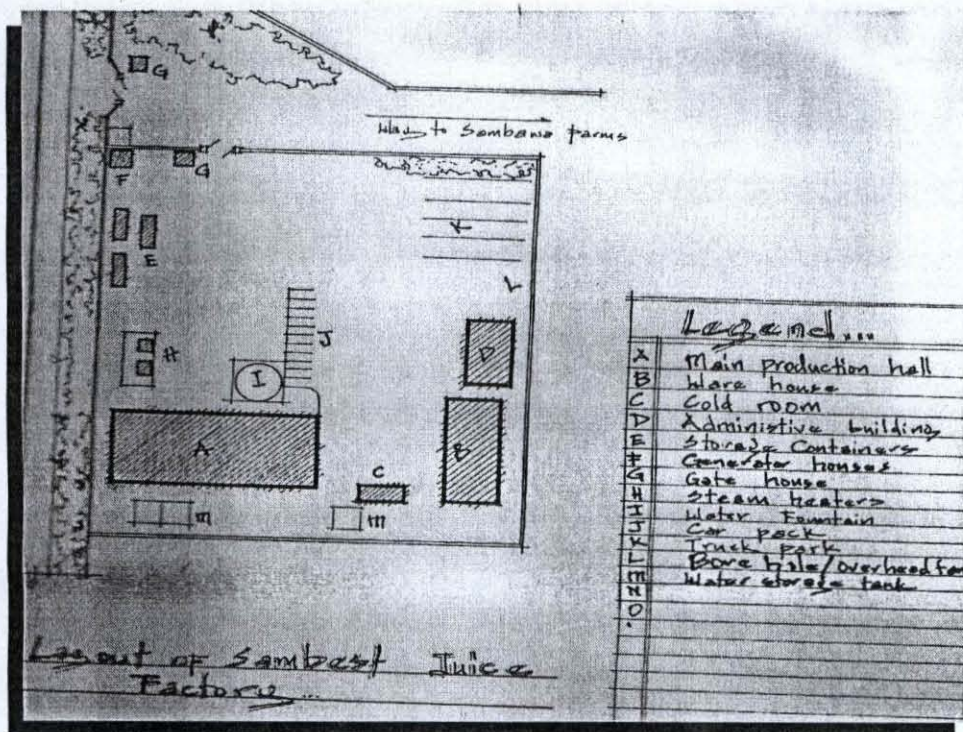 G
Way to Sambawa Farms
F
G
K
E
L
J
H
I
D
A
B
C
m
m
Legend...
A Main production hall
B Ware house
C Cold room
D Administive building
E Storage Containers
F Generator houses
G Gate house
H Steam heaters
I Water Fountain
J Car pack
K Truck park
L Bore hole/Overhead tan
m Water storage tank
N
O
Layout of Sambest Juice
Factory...